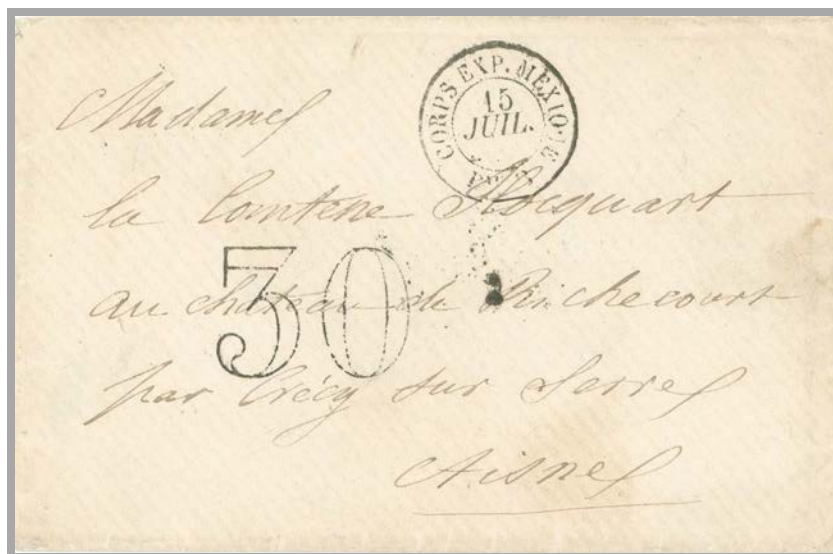 CORPS EXP. MEXIQUE
15
JUIL.
Madame
la Comtesse Hocquart
30
au château de Richecourt
par Crécy sur Serre
Aisne